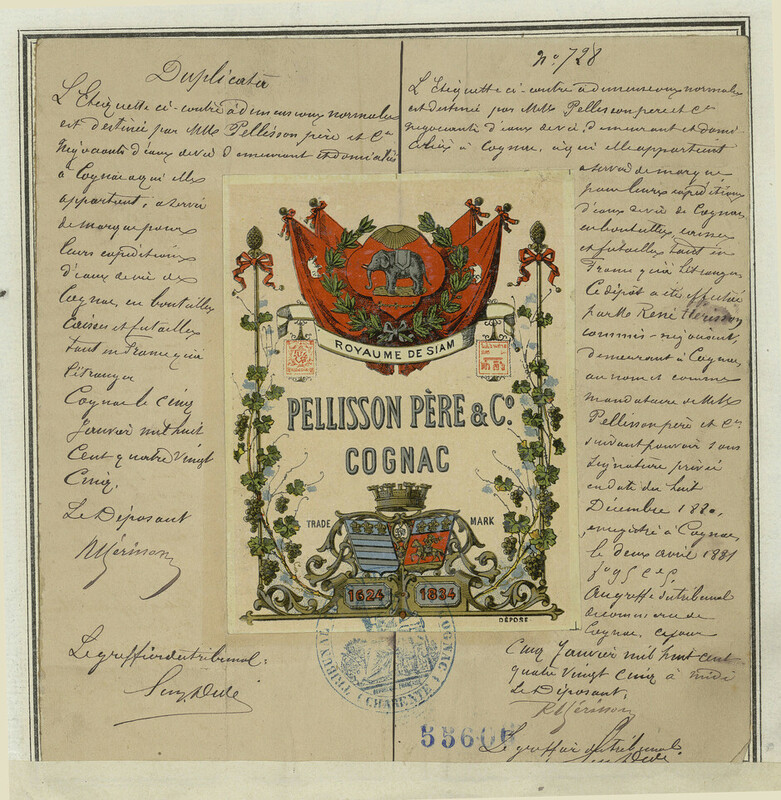 Duplicata
L'Etiquette ci-contre à dimensions normales
est destinée par MMs Pellisson père et Cie
négociants d'eaux de vie demeurant et domiciliés
à Cognac à qui elle
appartient, à servir
de marque pour
leurs expéditions
d'eaux de vie de
Cognac en bouteilles
caisses et futailles
tant en France qu'à
l'étranger
Cognac le cinq
Janvier mil huit
cent quatre vingt
cinq.
Le Déposant
R Hérisson
Le greffier du tribunal:
ROYAUME DE SIAM
PELLISSON PÈRE & Co.
COGNAC
TRADE MARK
1624 1834
DÉPOSÉ
TRIBUNAL COGNAC
REPUBLIQUE FRANÇAISE
(CHARENTE)
55606
no. 728
L'Etiquette ci-contre à dimensions normales
est destinée par MMs Pellisson père et Cie
négociants d'eaux de vie, demeurant et domi-
ciliés à Cognac, à qui elle appartient
à servir de marque
pour leurs expéditions
d'eaux de vie de Cognac
en bouteilles, caisses
et futailles tant en
France qu'à l'étranger
Ce dépôt a été effectué
par Mr René Hérisson
commis-négociant,
demeurant à Cognac
au nom et comme
mandataire de MMs
Pellisson père et Cie
suivant pouvoir sous
signature privée
en date du huit
Décembre 1880,
enregistré à Cognac
le deux avril 1881
fo 95 co 5.
Au greffe du tribunal
de commerce de
Cognac, ce jour
cinq Janvier mil huit cent
quatre vingt cinq à midi
Le Déposant,
R Hérisson
Le greffier du tribunal